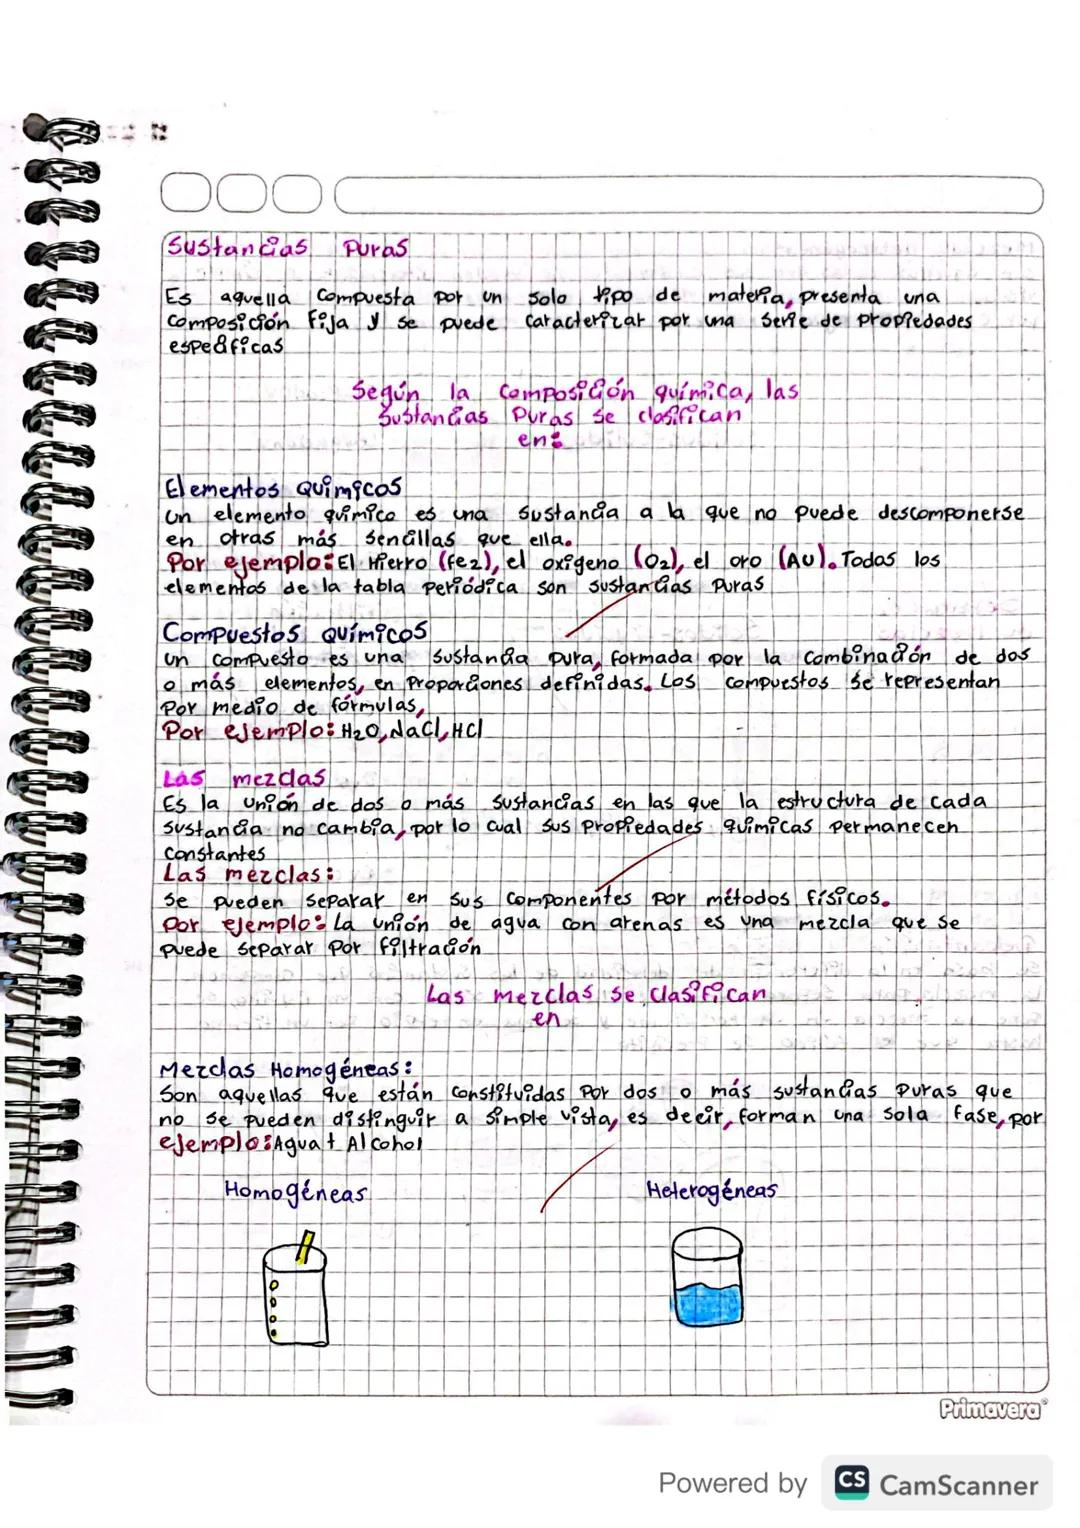 Sustancias Puras
Es aquella compuesta por un solo tipo de materia, presenta una
composición fija y se puede caracterizar por una serie de propiedades
específicas
Según la composición química, las
sustancias puras se clasifican
en:
Elementos Químicos
Un elemento químico es una sustancia a la que no puede descomponerse
en otras más sencillas que ella.
Por ejemplo: El Hierro (Fe2), el oxígeno (O2), el oro (AU). Todos los
elementos de la tabla periódica son sustancias puras
Compuestos químicos
Un compuesto es una sustancia pura, formada por la combinación de dos
o más elementos, en proporciones definidas. Los compuestos se representan
por medio de fórmulas,
Por ejemplo: H2O, NaCl, HCl
Las mezclas
Es la unión de dos o más sustancias en las que la estructura de cada
sustancia no cambia, por lo cual sus propiedades químicas permanecen
constantes
Las mezclas:
Se pueden separar en sus componentes por métodos físicos.
Por ejemplo: La unión de agua con arenas es una mezcla que se
puede separar por filtración
Las mezclas se clasifican
en
Mezclas Homogéneas:
Son aquellas que están constituidas por dos o más sustancias puras que
no se pueden distinguir a simple vista, es decir, forman una sola fase, por
ejemplo: Agua + Alcohol
Homogéneas Heterogéneas
Primavera
Powered by CS CamScanner